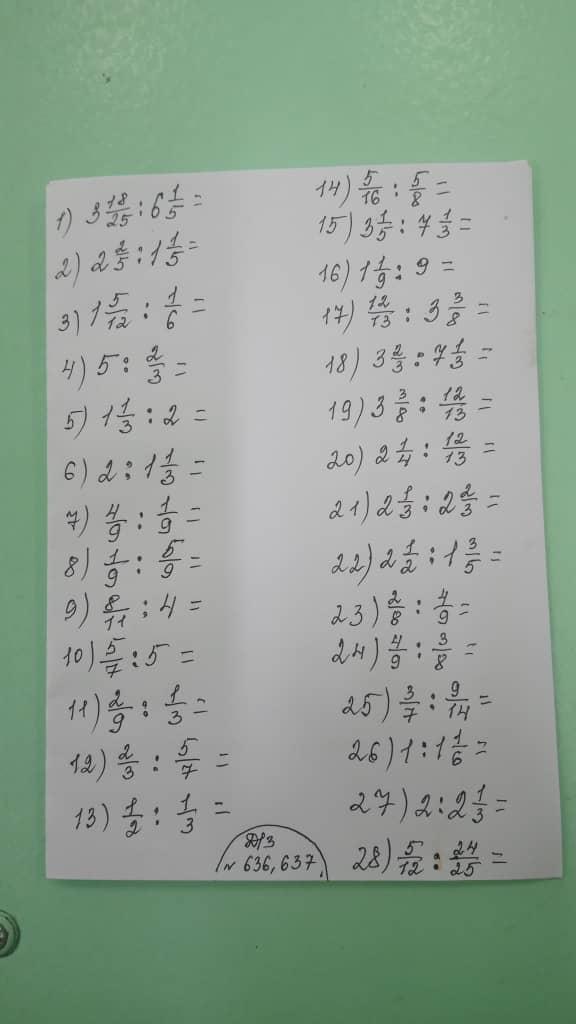 1) 3 18/25 : 6 1/5 =
2) 2 2/5 : 1 1/5 =
3) 1 5/12 : 1/6 =
4) 5 : 2/3 =
5) 1 1/3 : 2 =
6) 2 : 1 1/3 =
7) 4/9 : 1/9 =
8) 1/9 : 5/9 =
9) 8/11 : 4 =
10) 5/7 : 5 =
11) 2/9 : 1/3 =
12) 2/3 : 5/7 =
13) 1/2 : 1/3 =
14) 5/16 : 5/8 =
15) 3 1/5 : 7 1/3 =
16) 1 1/9 : 9 =
17) 12/13 : 3 3/8 =
18) 3 2/3 : 7 1/3 =
19) 3 3/8 : 12/13 =
20) 2 1/4 : 12/13 =
21) 2 1/3 : 2 2/3 =
22) 2 1/2 : 1 3/5 =
23) 2/8 : 4/9 =
24) 4/9 : 3/8 =
25) 3/7 : 9/14 =
26) 1 : 1 1/6 =
27) 2 : 2 1/3 =
28) 5/12 : 24/25 =
Д/З
№ 636, 637